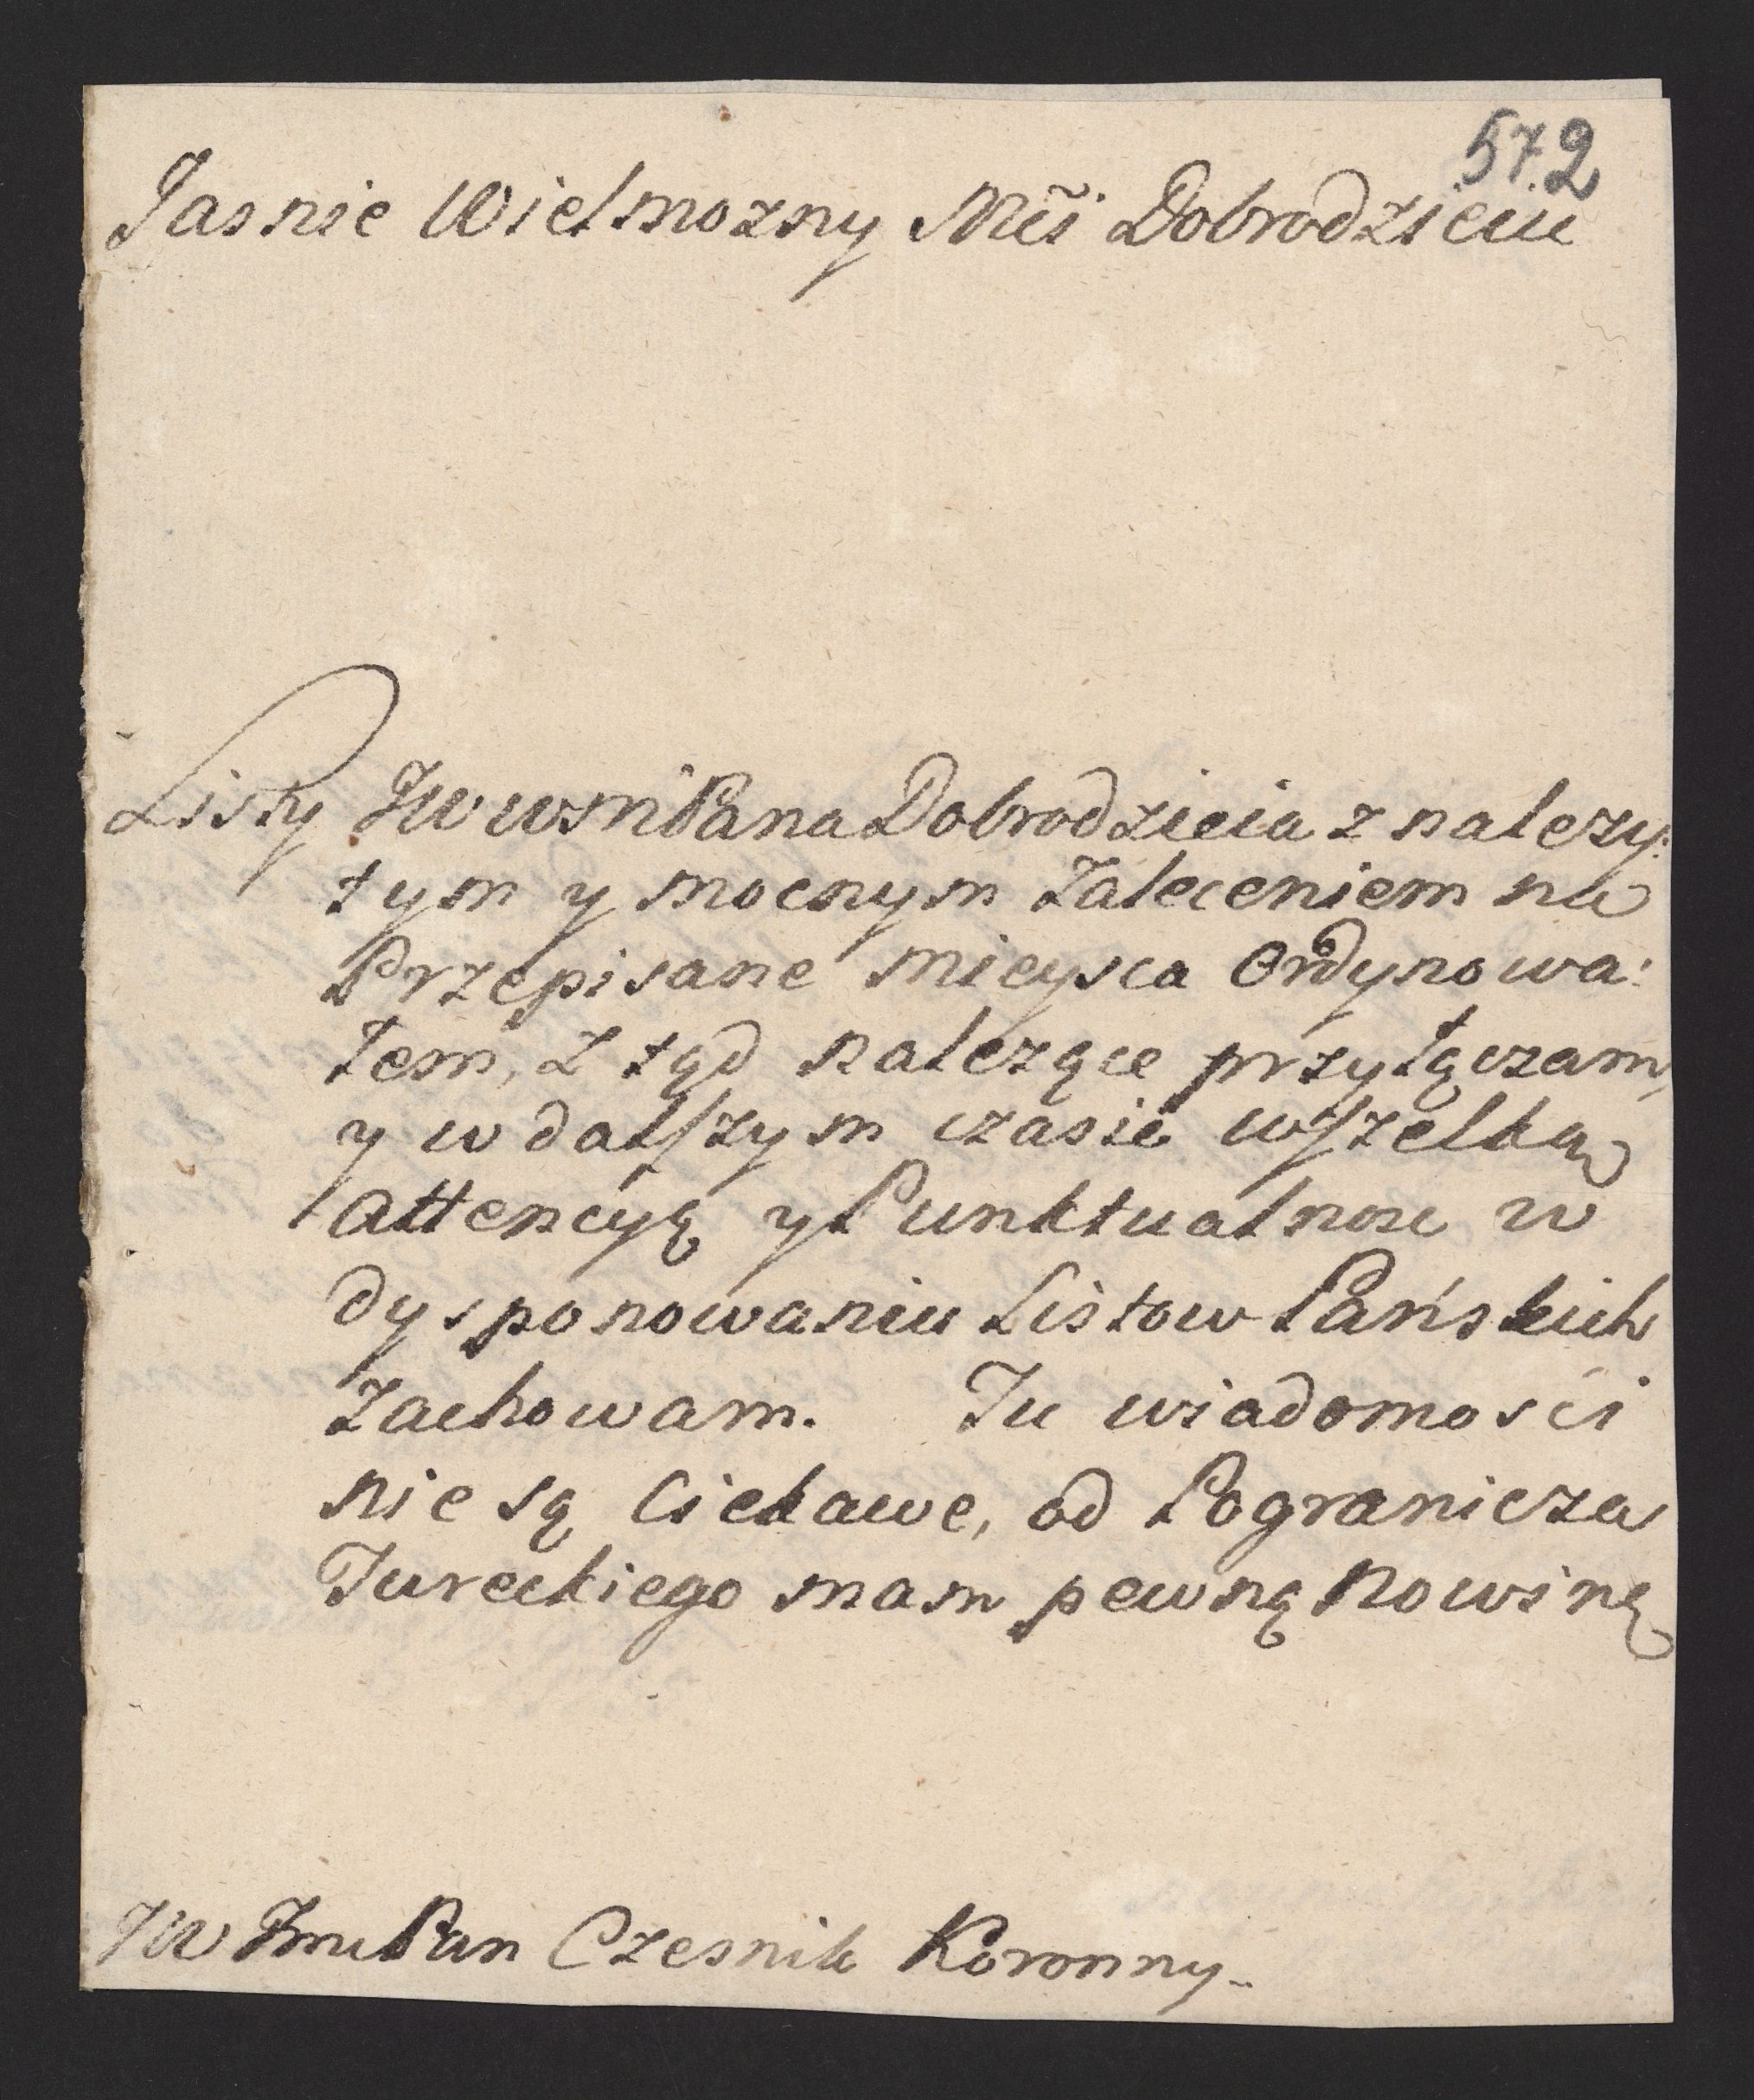 572
Jasnie Wielmozny Mći Dobrodzieiu
Listy JWWMPana Dobrodzieia z nalezy:
tym y mocnym Zaleceniem na
Przepisane mieysca Ordynowa:
łem, z tąd nalezące przyłączam,
y w dalszym czasie wszelką
attencyą y Punktualnosc w
dysponowaniu Listow Pańskich
Zachowam. Tu wiadomości
nie są Ciekawe, od Pogranicza
Tureckiego mam pewną Nowinę
JW Jmc Pan Czesnik Koronny